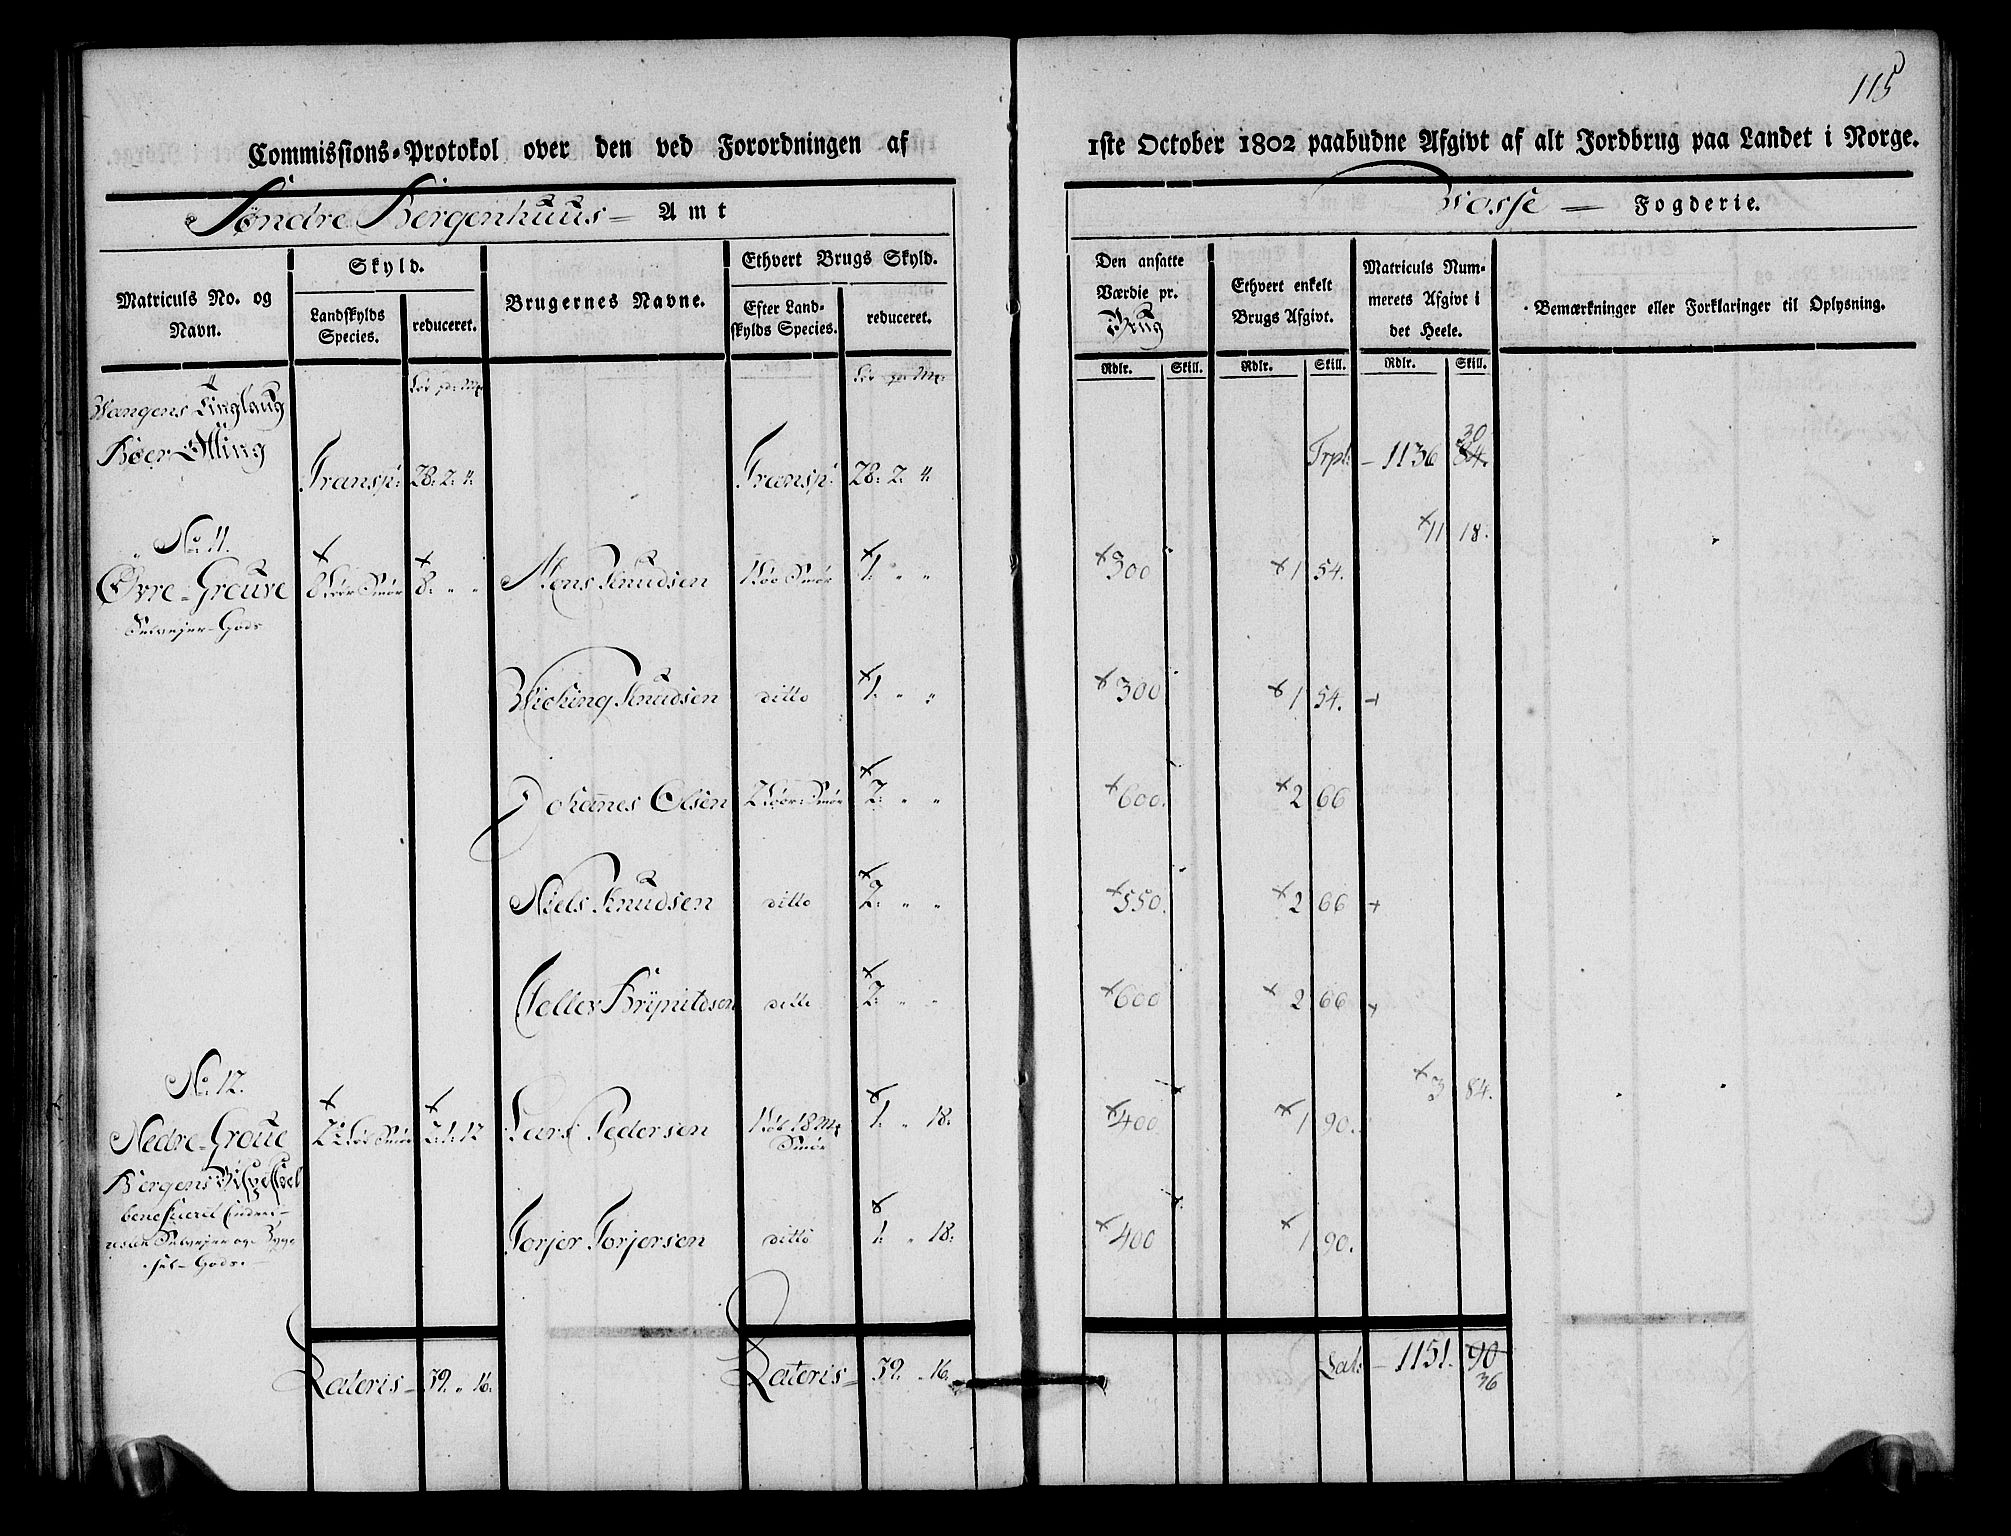 115
Commissions-Protokol over den ved Forordningen af 1ste October 1802 paabudne Afgivt af alt Jordbrug paa Landet i Norge.
Søndre Bergenhuus Amt
Vosse Fogderie.
Matriculs No. og Navn.
Skyld.
Landskylds Species.
reduceret.
Brugernes Navne.
Ethvert Brugs Skyld.
Efter Landskylds Species.
reduceret.
Den ansatte Værdie pr. Brug
Ethvert enkelt Brugs Afgivt.
Matriculs Nummerets Afgivt i det Heele.
Bemærkninger eller Forklaringer til Oplysning.
Rdlr. Skill. Rdlr. Skill. Rdlr. Skill.
Vangens Tinglaug
Transp: 28. 2. 4. Transp: 28. 2. 4. Trpt: 1136 84. 30
No. 11. 11 18.
Øvre-Greuve 8 Løb Smør 8. " " Mons Knudsen 1 Løb Smør 1. " " 300 1 54.
Selvejer-Gods
Viching Knudsen ditto 1. " " 300 1 54.
Johannes Olsen 2 Løber Smør 2. " " 600. 2 66
Niels Knudsen ditto 2. " " 550. 2 66
ditto 2. " " 600 2 66
No. 12. 3 84.
Nedre-Groue 2½ Løb Smør 2. 1. 12 Lars Pedersen 1 Løb 18 mk Smør 1. " 18. 400 1 90.
Bergens
beneficeret
Selvejer og Bygsel-Gods.
Torjer Torjersen ditto 1. " 18. 400 1 90.
Lateris 39. " 16. Lateris 39. " 16. Lat: 1151. 90 36